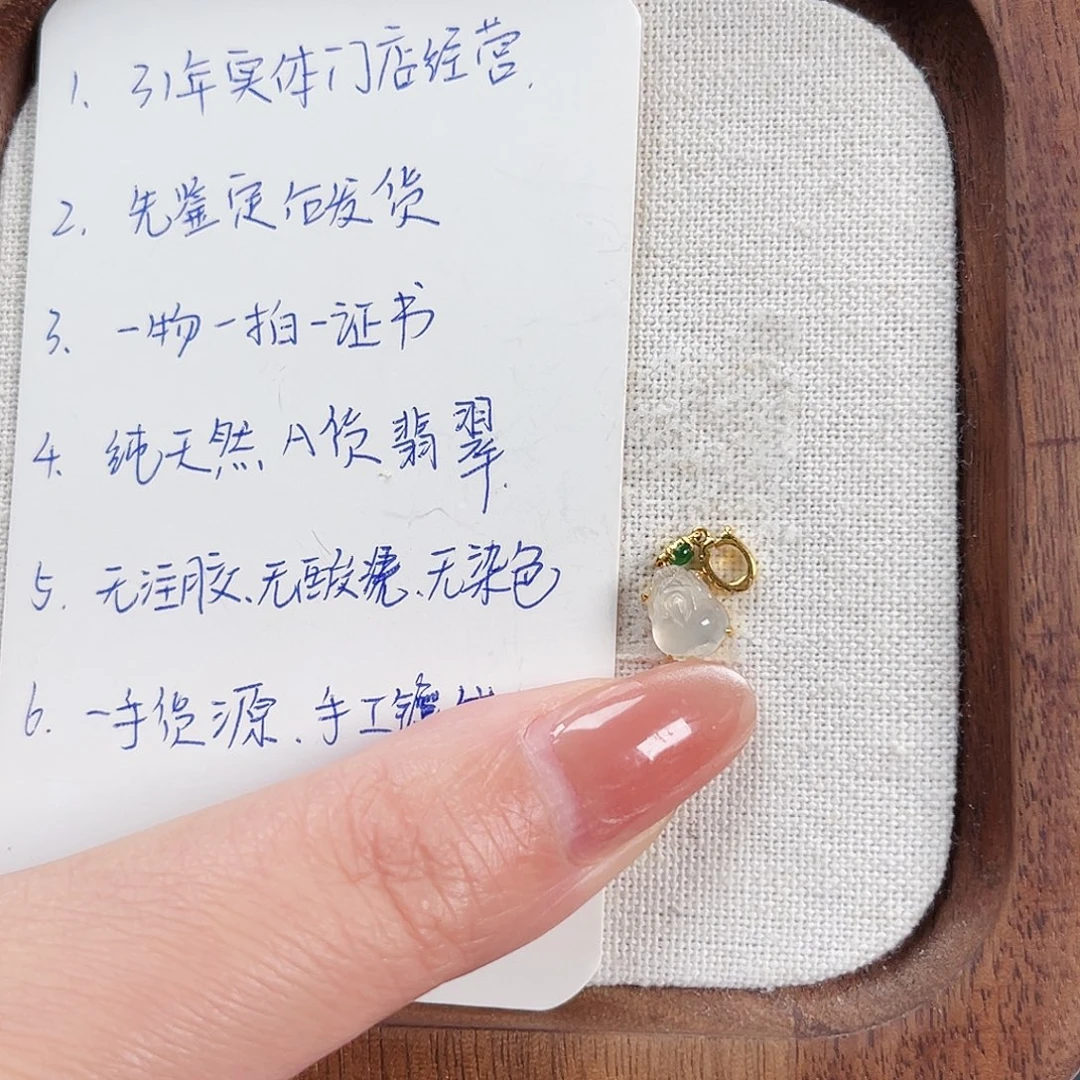 1、31年实体门店经营.
2. 先鉴定后发货
3、一物一拍一证书
4、纯天然A货翡翠.
5. 无注胶、无酸洗、无染色
6. 一手货源、手工镶